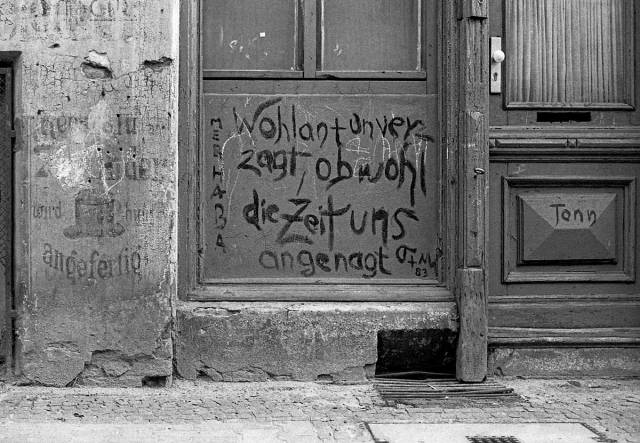 wird
angefertig
MERHABA
Wohlan unver-
zagt, obwohl
die Zeit uns
angenagt
83
Tonn